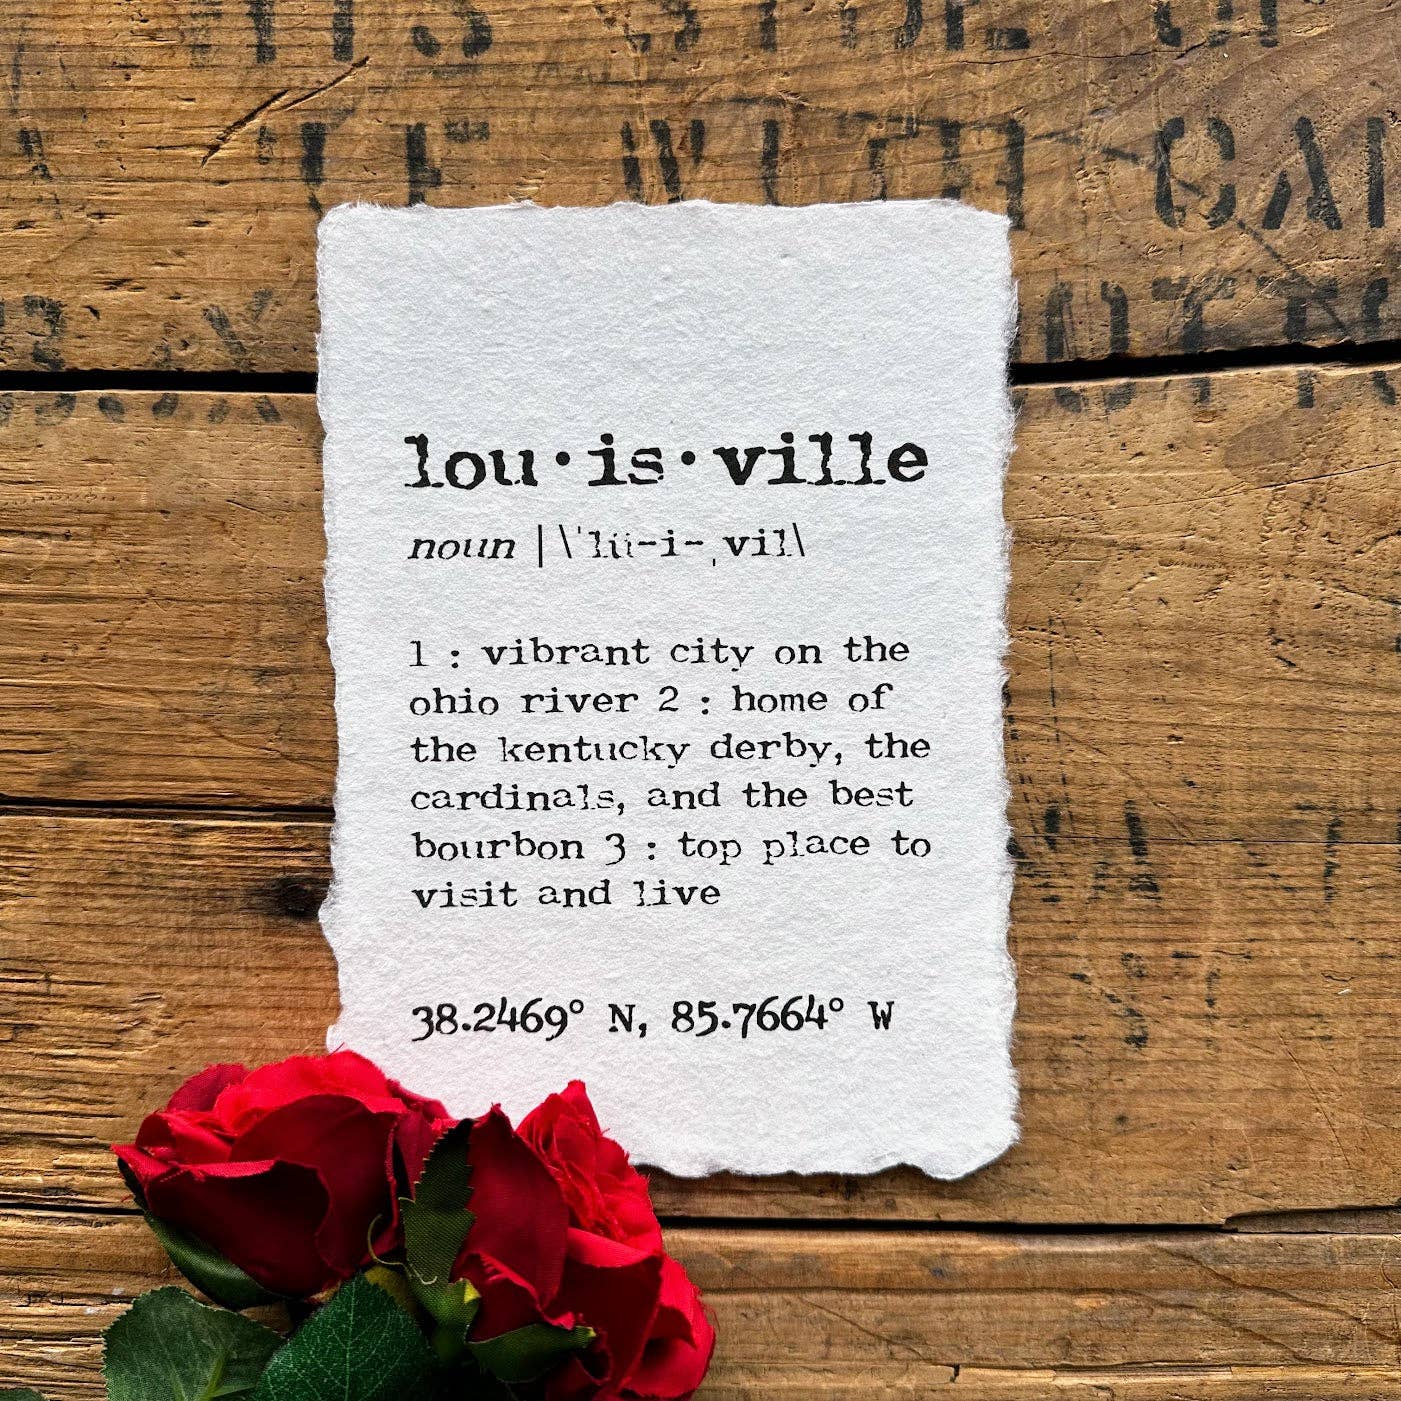 WITH CAN
lou·is·ville
noun | \ˈlü-i-ˌvil\
1 : vibrant city on the
ohio river 2 : home of
the kentucky derby, the
cardinals, and the best
bourbon 3 : top place to
visit and live
38.2469° N, 85.7664° W